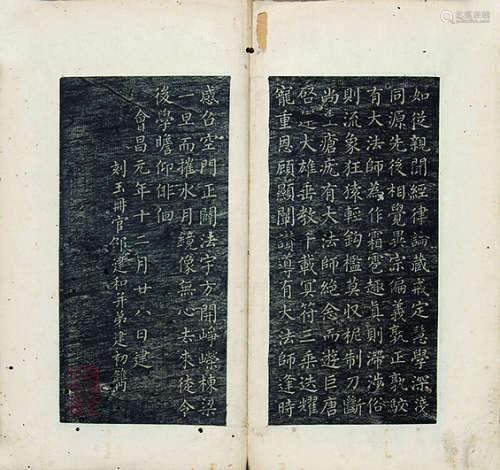 如從親聞經律論藏戒定慧學深淺
同源先後相覺異宗偏義孰正孰駮
有大法師為作霜雹趣真則滯涉俗
則流象狂猿輕鈎檻莫收柅制刀斷
尚生瘡疣有大法師絕念而遊巨唐
啓運大雄垂教千載冥符三乘迭耀
寵重恩顧顯闡讚導有大法師逢時
感召空門正闢法宇方開崢嶸棟梁
一旦而摧水月鏡像無心去來徒令
後學瞻仰徘徊
會昌元年十二月廿八日建
刻玉冊官邵建和并弟建初鐫